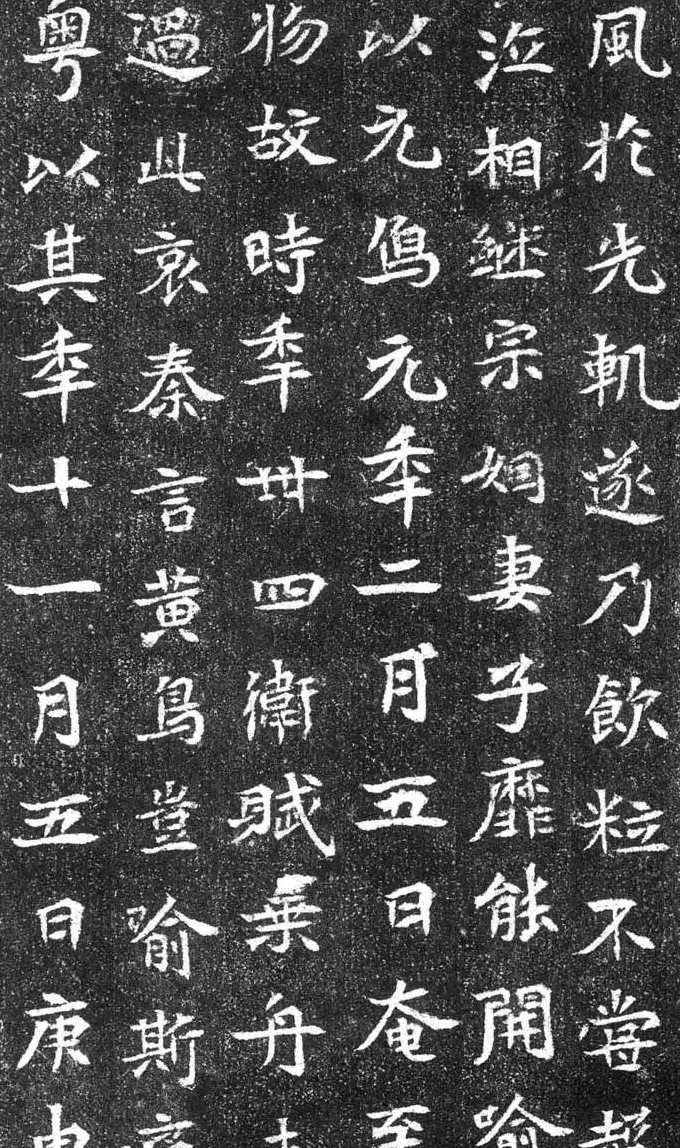 風於先軌遂乃飲粒不嘗
泣相継宗姻妻子靡能開喻
以元象元秊二月五日奄至
物故時秊卌四衛賦乗舟
過此哀秦言黃鳥豈喻斯哀
粵以其秊十一月五日庚申